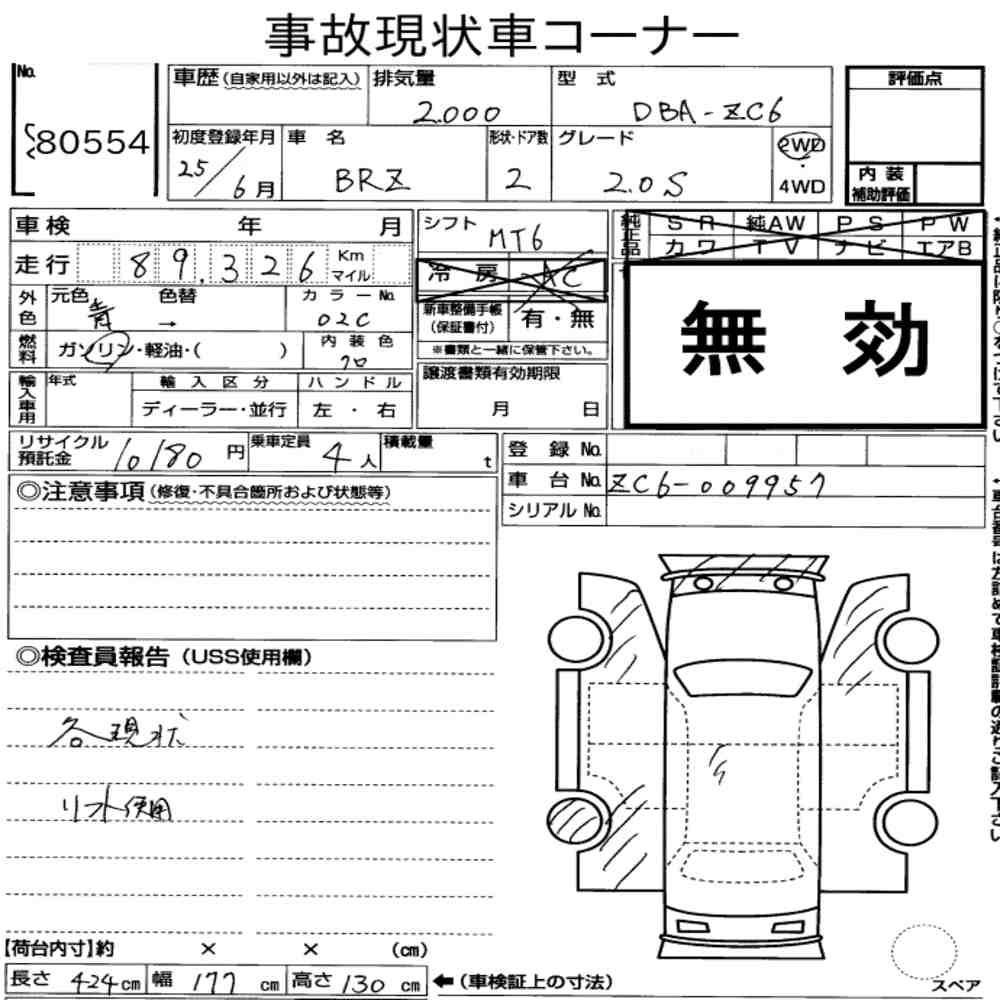 事故現状車コーナー
No.
80554
車歴(自家用以外は記入)
排気量
2.000
型式
DBA-ZC6
評価点
初度登録年月
25/6月
車名
BRZ
形状・ドア数
2
グレード
2.0S
2WD
・
4WD
内装
補助評価
車検 年 月
シフト
MT6
純正品
SR 純AW PS PW
カワ TV ナビ エアB
走行 89.326 Km マイル
冷房 AC
外色
元色 色替
青 →
カラーNo.
02C
新車整備手帳
(保証書付)
有・無
※書類と一緒に保管下さい。
無効
燃料
ガソリン・軽油・( )
内装色
70
譲渡書類有効期限
月 日
輸入車用
年式
輸入区分
ディーラー・並行
ハンドル
左・右
リサイクル預託金
10180 円
乗車定員
4人
積載量
t
登録No.
車台No. ZC6-009957
シリアルNo.
◎注意事項(修復・不具合箇所および状態等)
◎検査員報告(USS使用欄)
各現状
リフト使用
【荷台内寸】約 × × (cm)
長さ 424cm 幅 177cm 高さ 130cm
←(車検証上の寸法)
スペア